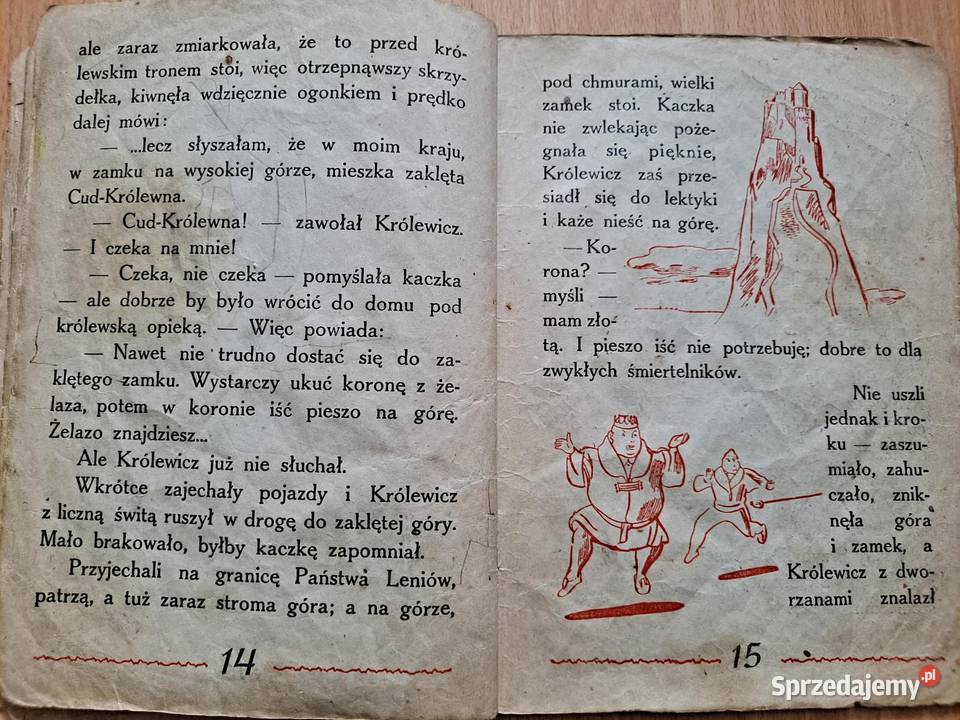 ale zaraz zmiarkowała, że to przed kró-
lewskim tronem stoi, więc otrzepnąwszy skrzy-
dełka, kiwnęła wdzięcznie ogonkiem i prędko
dalej mówi:
— ...lecz słyszałam, że w moim kraju,
w zamku na wysokiej górze, mieszka zaklęta
Cud-Królewna.
— Cud-Królewna! — zawołał Królewicz.
— I czeka na mnie!
— Czeka, nie czeka — pomyślała kaczka
— ale dobrze by było wrócić do domu pod
królewską opieką. — Więc powiada:
— Nawet nie trudno dostać się do za-
klętego zamku. Wystarczy ukuć koronę z że-
laza, potem w koronie iść pieszo na górę.
Żelazo znajdziesz...
Ale Królewicz już nie słuchał.
Wkrótce zajechały pojazdy i Królewicz
z liczną świtą ruszył w drogę do zaklętej góry.
Mało brakowało, byłby kaczkę zapomniał.
Przyjechali na granicę Państwa Leniów,
patrzą, a tuż zaraz stroma góra; a na górze,
14
pod chmurami, wielki
zamek stoi. Kaczka
nie zwlekając poże-
gnała się pięknie,
Królewicz zaś prze-
siadł się do lektyki
i każe nieść na górę.
— Ko-
rona? —
myśli —
mam zło-
tą. I pieszo iść nie potrzebuję; dobre to dla
zwykłych śmiertelników.
Nie uszli
jednak i kro-
ku — zaszu-
miało, zahu-
czało, znik-
nęła góra
i zamek, a
Królewicz z dwo-
rzanami znalazł
15
Sprzedajemy.pl